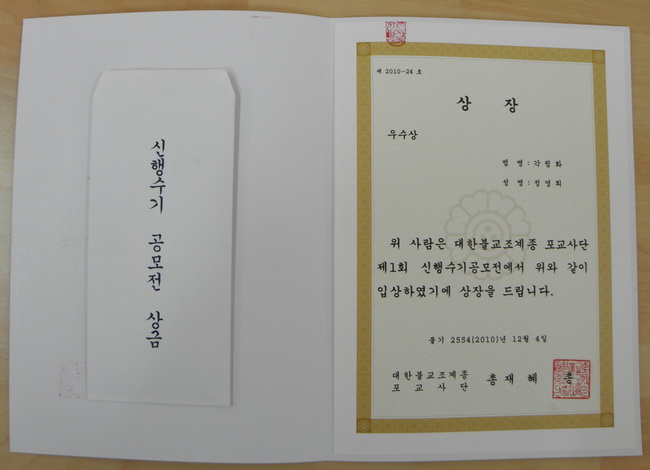 신행수기 공모전 상금
제 2010-24 호
상 장
우수상
법 명 : 각 림 화
성 명 : 정 영 희
위 사람은 대한불교조계종 포교사단
제1회 신행수기공모전에서 위와 같이
입상하였기에 상장을 드립니다.
불기 2554(2010)년 12월 4일
대한불교조계종
포 교 사 단
총 재 혜 총